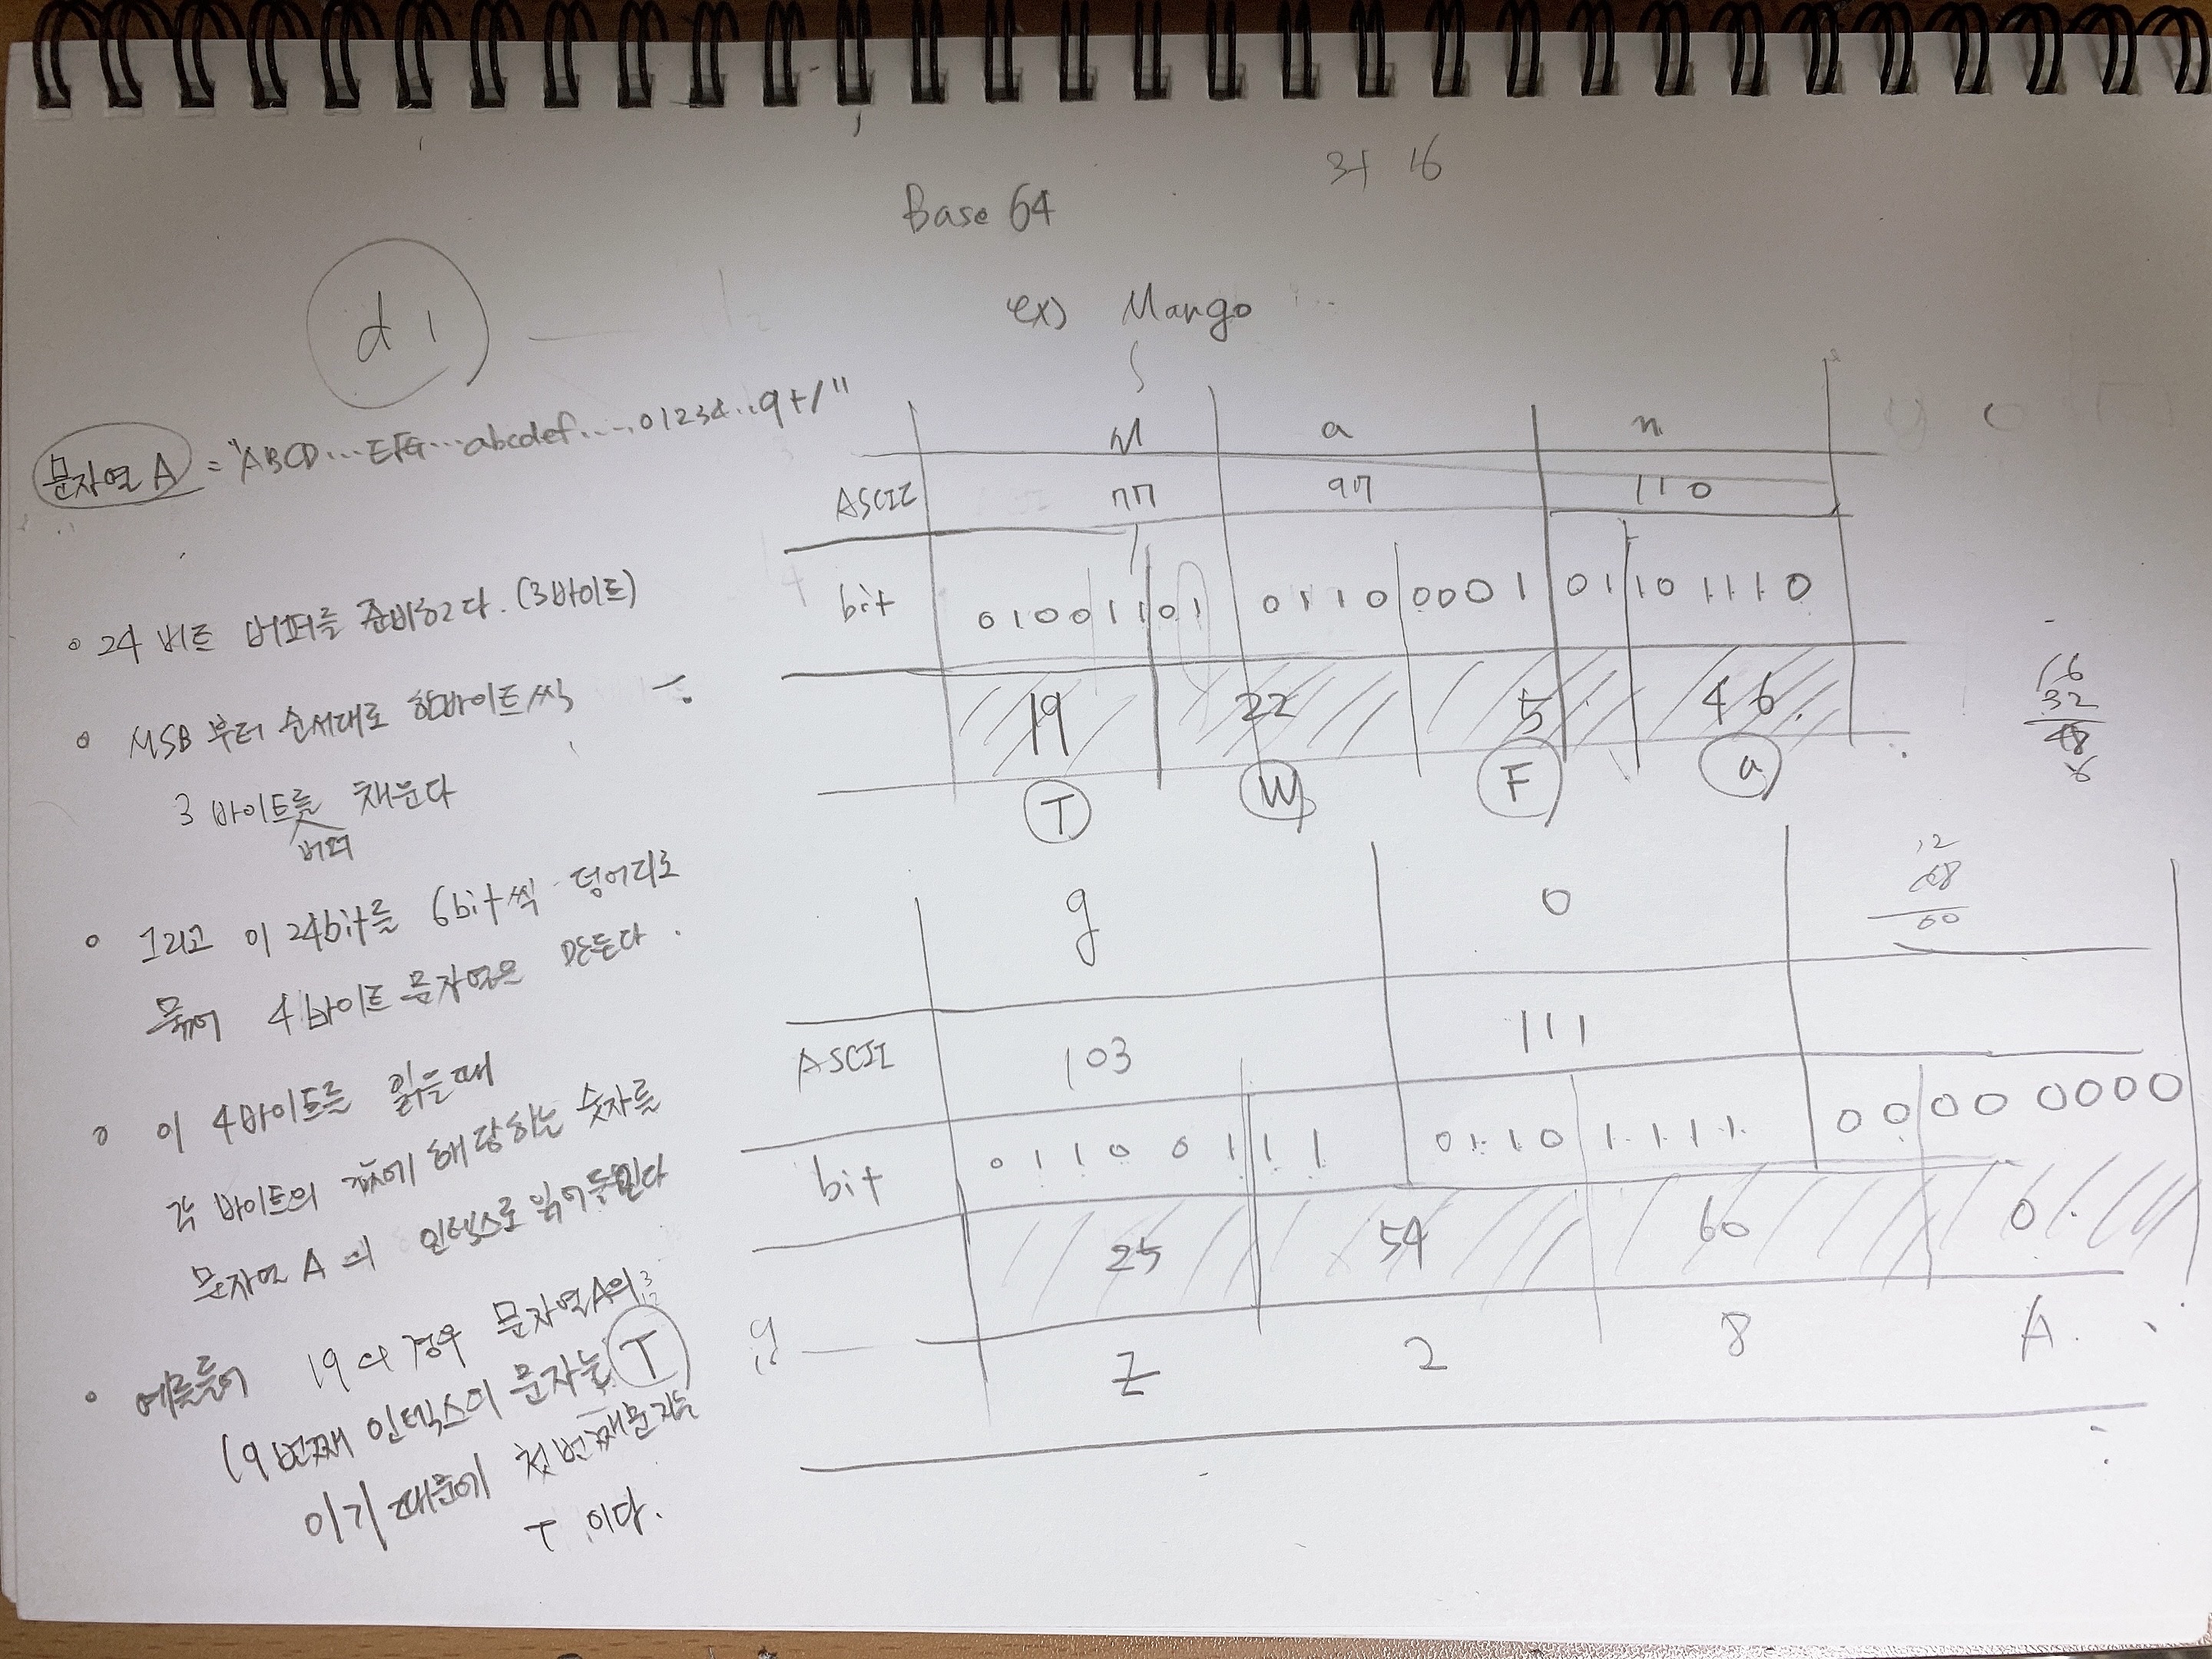 Base 64
ex) Mango
d 1
문자열 A = "ABCD...EFG...abcdef....01234..9+/"
24 비트 버퍼를 준비한다. (3바이트)
MSB 부터 순서대로 한바이트씩
3 바이트를 채운다
버퍼
그리고 이 24bit를 6bit씩 덩어리로
묶어 4바이트 문자열을 만든다.
이 4바이트를 읽을때
각 바이트의 값에 해당하는 숫자를
문자열 A의 인덱스로 읽어들인다
예를들어 19의 경우 문자열A의
19번째 인덱스의 문자는 T
이기 때문에 첫번째문자는
T 이다.
M a n
ASCII 77 97 110
bit 01001101 01100001 01101110
19 22 5 46
T W F a
16
32
48
g o
12
48
60
ASCII 103 111
bit 01100111 01101111 00000000
25 54 60 0
Z 2 8 A